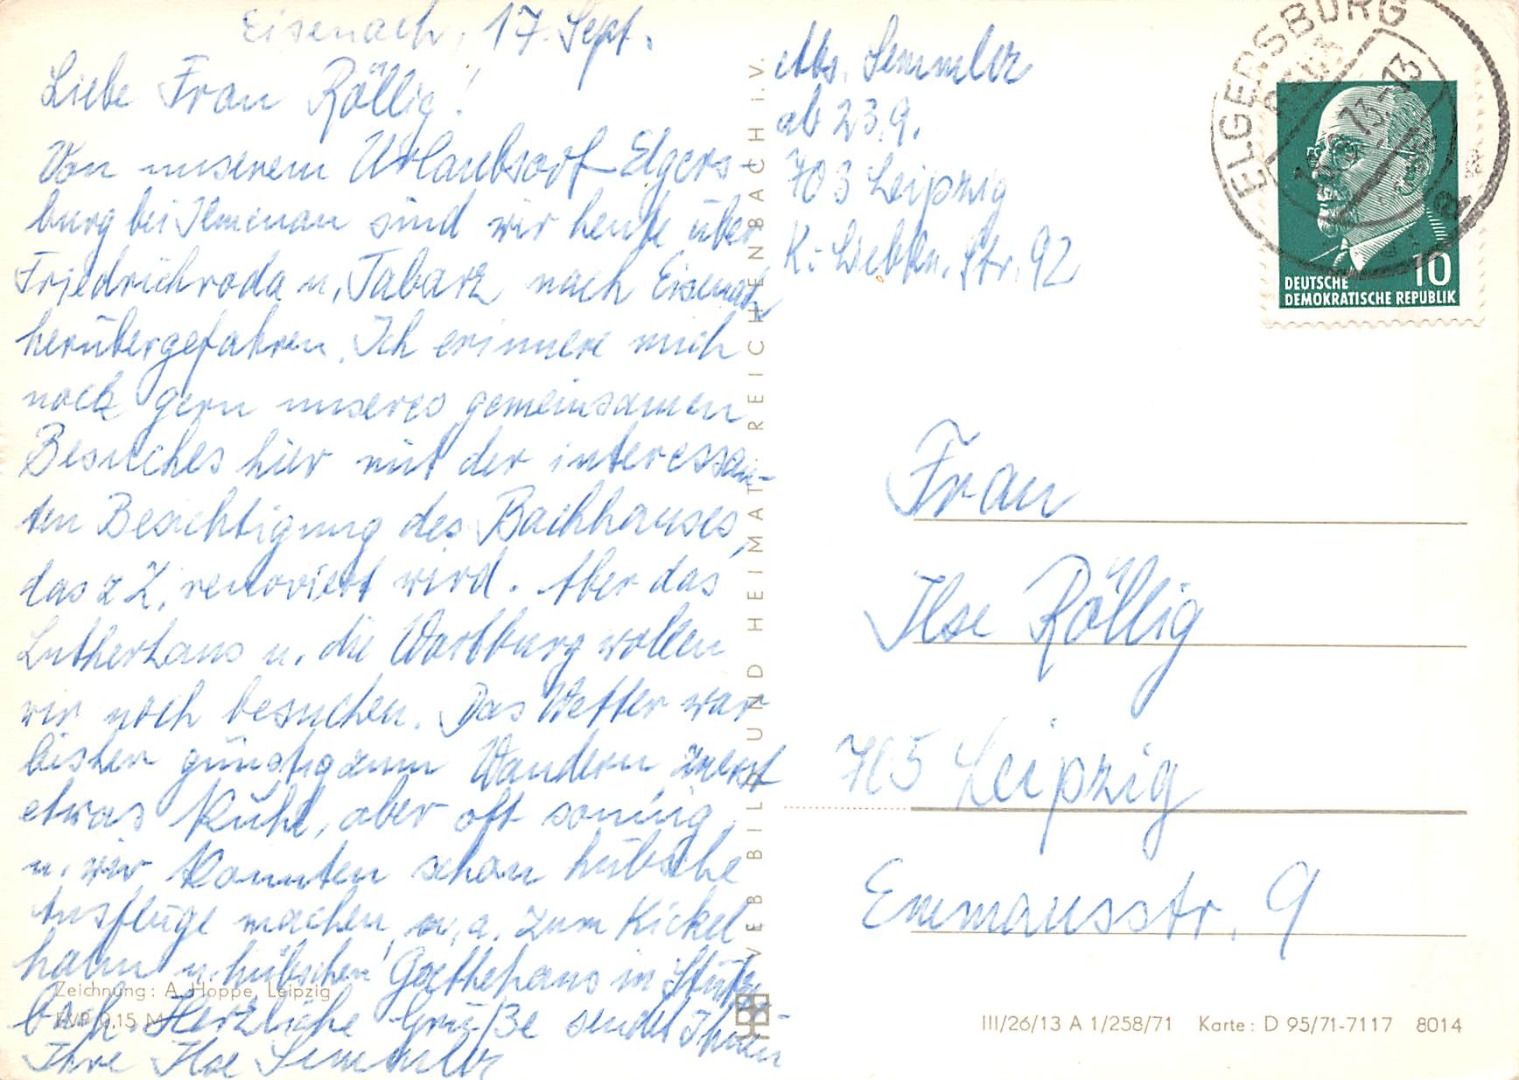 Eisenach, 17. Sept.
Liebe Frau Röllig!
Von unserem Urlaubsort Elgers-
burg bei Ilmenau sind wir heute über
Friedrichroda u. Tabarz nach Eisenach
herübergefahren. Ich erinnere mich
noch gern unseres gemeinsamen
Besuches hier mit der interessan-
ten Besichtigung des Bachhauses,
das z Z. renoviert wird. Aber das
Lutherhaus u. die Wartburg wollen
wir noch besuchen. Das Wetter war
bisher günstig zum Wandern, zuerst
etwas kühl, aber oft sonnig
u. wir konnten schon hübsche
Ausflüge machen, u. a. zum Kickel
hahn u. hübschen Goethehaus in Stützer-
bach. Herzliche Grüße sendet Ihnen
Ihre Ilse Semmler
Zeichnung: A. Hoppe, Leipzig
EVP 0,15 M
VEB BILD UND HEIMAT REICHENBACH I. V.
Abs. Semmler
ab 23.9.
703 Leipzig
K.-Liebkn. Str. 92
ELGERSBURG
-13
a
10
DEUTSCHE
DEMOKRATISCHE REPUBLIK
Frau
Ilse Röllig
705 Leipzig
Emmausstr. 9
III/26/13 A 1/258/71 Karte: D 95/71-7117 8014